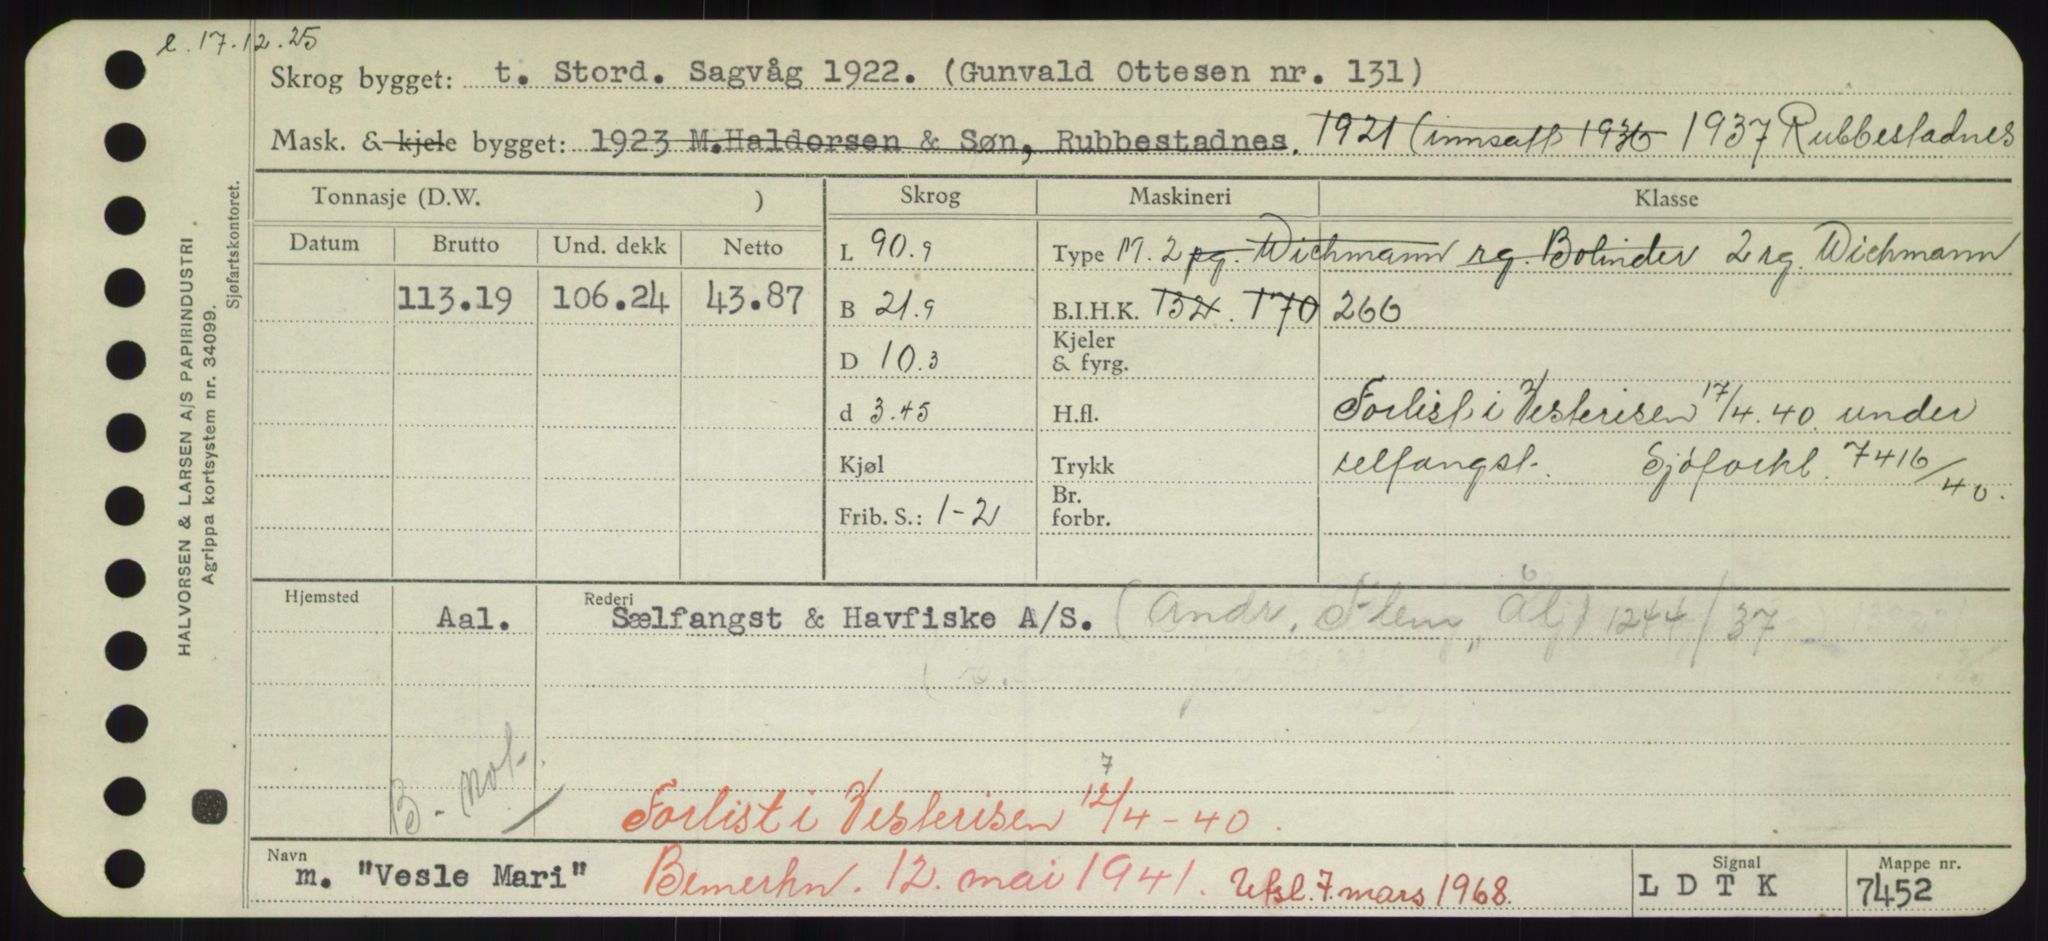 e. 17.12.25
Skrog bygget: t. Stord. Sagvåg 1922. (Gunvald Ottesen nr. 131)
Mask. & kjele bygget: 1923 M.Haldorsen & Søn, Rubbestadnes. 1921 (innsatt 1936 1937 Rubbestadnes
Tonnasje (D.W. ) Skrog Maskineri Klasse
Datum Brutto Und. dekk Netto L 90.9 Type M. 2 pg. Wichmann rg. Bolinder 2 rg. Wichmann
113.19 106.24 43.87 B 21.9 B.I.H.K. 132. 170 266
D 10.3 Kjeler & fyrg.
d 3.45 H.fl. Forlist i Vesterisen 17/4.40. under
Kjøl Trykk selfangst. Sjøforkl. 7416/40.
Frib. S.: 1-2 Br. forbr.
Hjemsted Aal. Rederi Sælfangst & Havfiske A/S. (Andr. Flem, Ål) 1244/37
B-not.
7
Forlist i Vesterisen 12/4-40.
Navn m. "Vesle Mari" Bemerkn. 12. mai 1941. Utsl. 7. mars 1968. Signal L D T K Mappe nr. 7452
HALVORSEN & LARSEN A/S PAPIRINDUSTRI
Agrippa kortsystem nr. 34099.
Sjøfartskontoret.